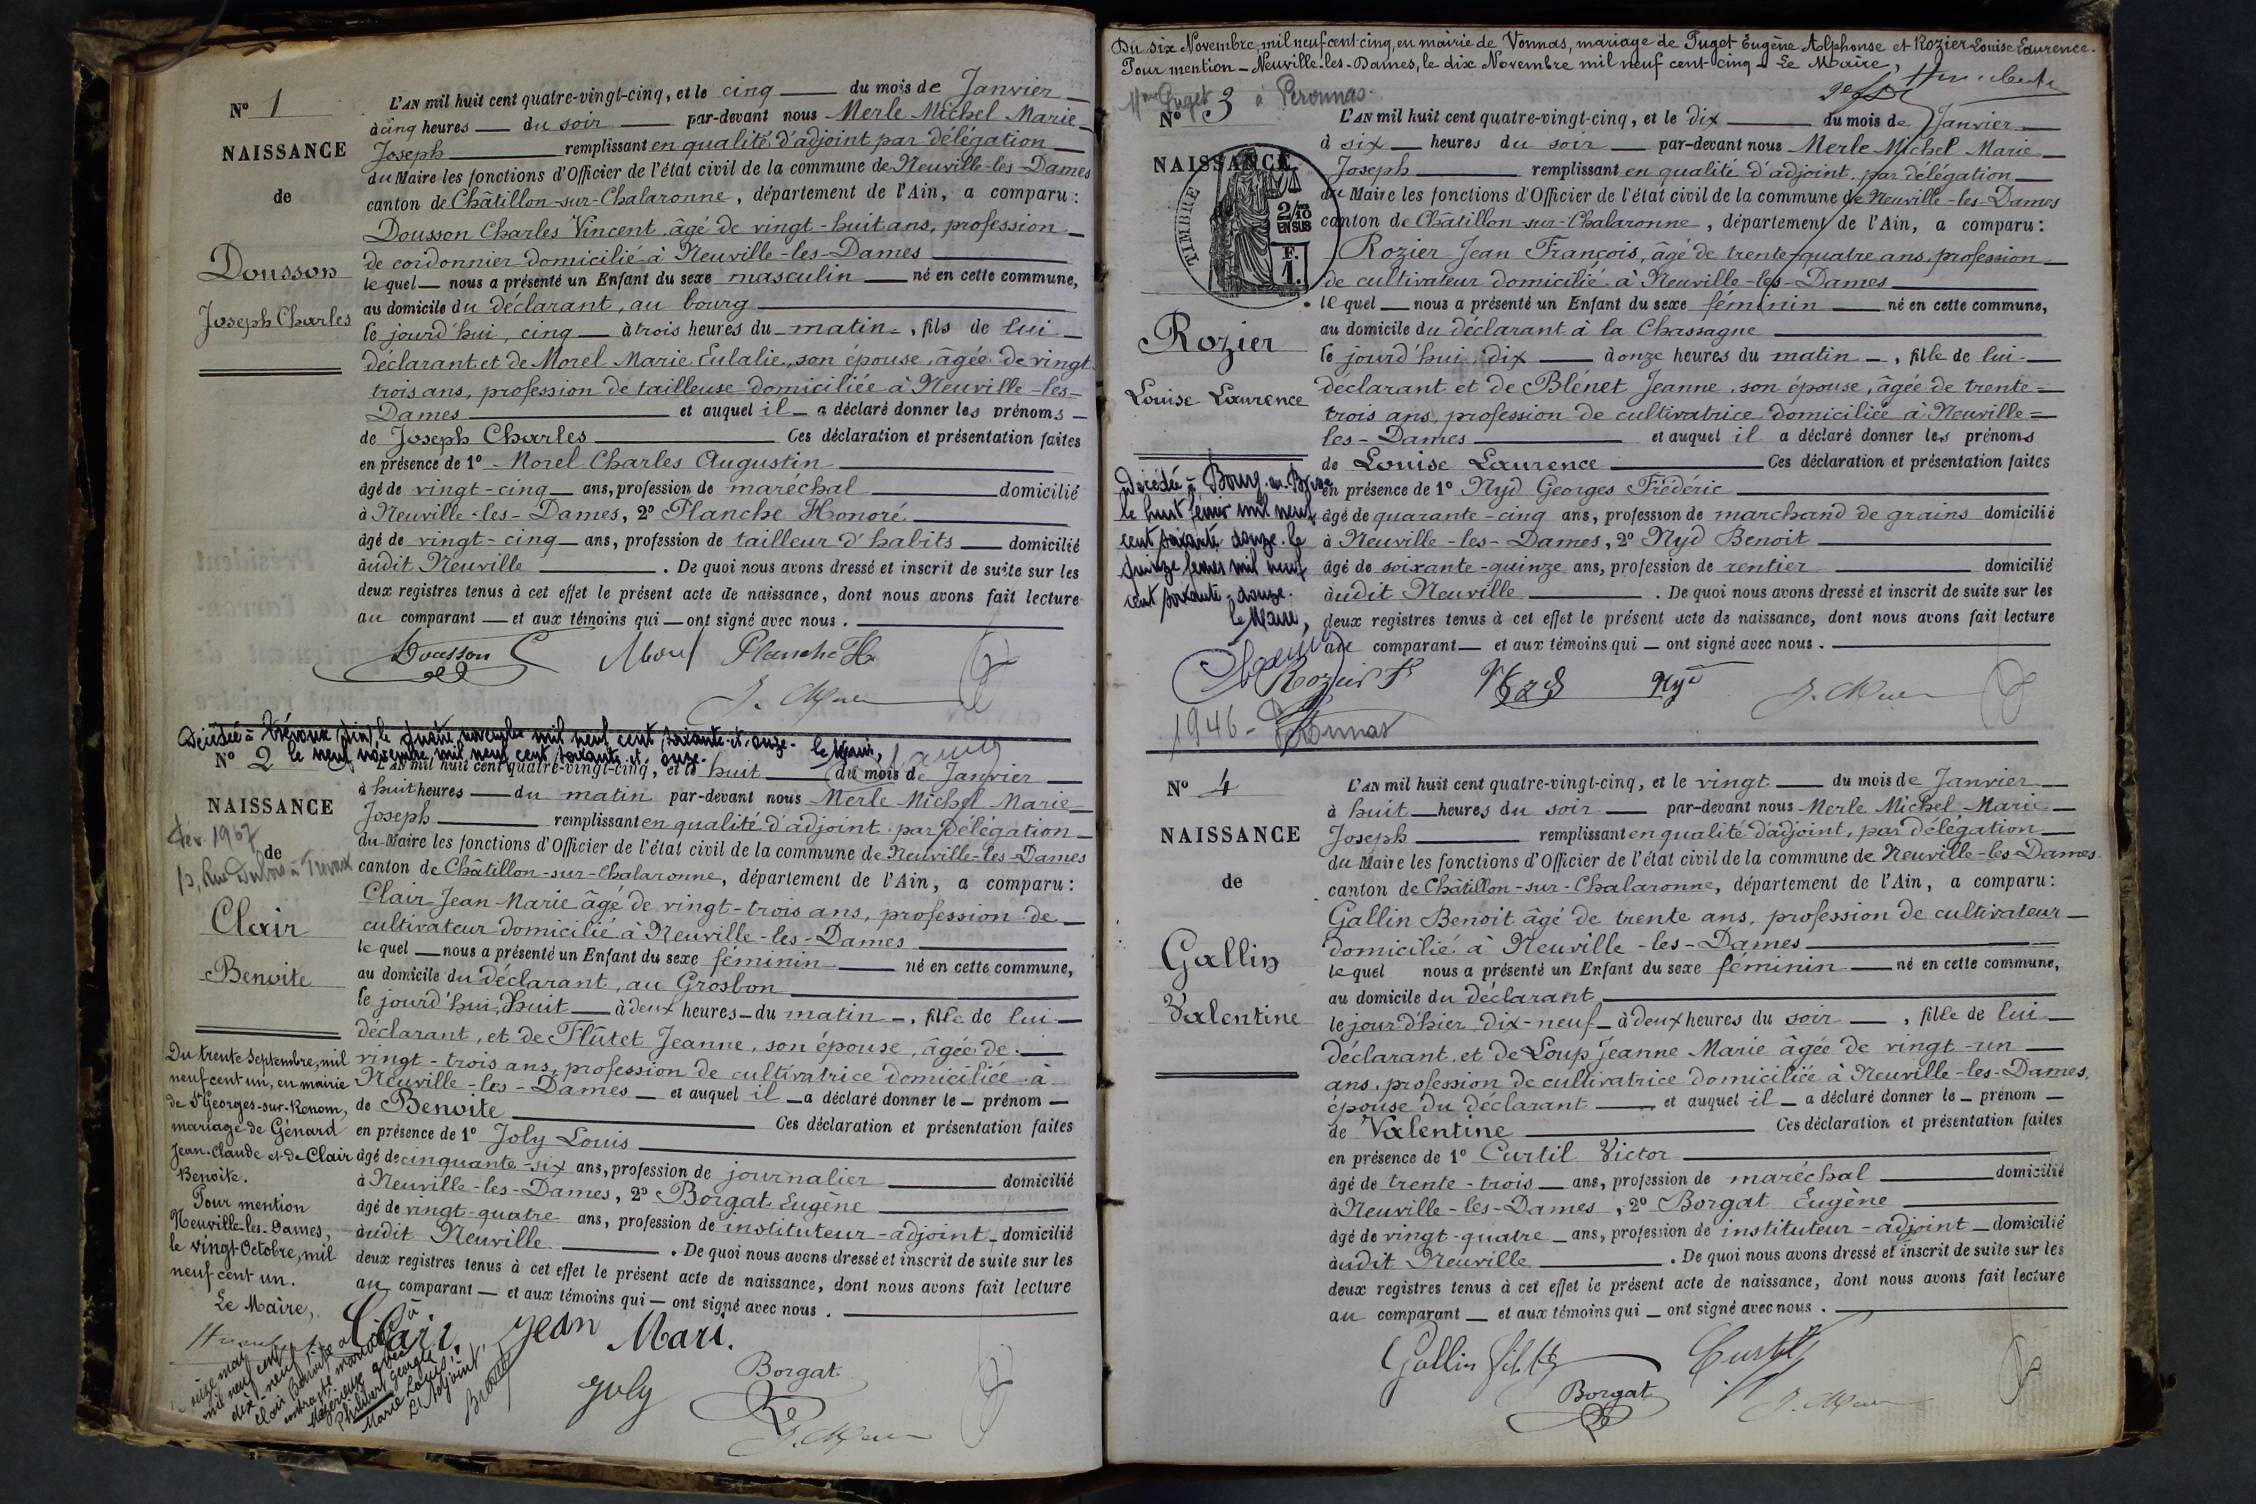 N° 1
NAISSANCE
de
Dousson
Joseph Charles
L'AN mil huit cent quatre-vingt-cinq, et le cinq du mois de Janvier
à cinq heures du soir par-devant nous Merle Michel Marie
Joseph remplissant en qualité d'adjoint par délégation
du Maire les fonctions d'Officier de l'état civil de la commune de Neuville-les-Dames
canton de Châtillon-sur-Chalaronne, département de l'Ain, a comparu :
Dousson Charles Vincent âgé de vingt-huit ans, profession
de cordonnier domicilié à Neuville-les-Dames
lequel nous a présenté un Enfant du sexe masculin né en cette commune,
au domicile du déclarant, au bourg
le jourd'hui, cinq à trois heures du matin, fils de lui
déclarant et de Morel Marie Eulalie, son épouse, âgée de vingt
trois ans, profession de tailleuse domiciliée à Neuville-les-
Dames et auquel il a déclaré donner les prénoms
de Joseph Charles Ces déclaration et présentation faites
en présence de 1° Morel Charles Augustin
âgé de vingt-cinq ans, profession de maréchal domicilié
à Neuville-les-Dames, 2° Planche Honoré
âgé de vingt-cinq ans, profession de tailleur d'habits domicilié
audit Neuville. De quoi nous avons dressé et inscrit de suite sur les
deux registres tenus à cet effet le présent acte de naissance, dont nous avons fait lecture
au comparant et aux témoins qui ont signé avec nous.
Dousson Planche H
Décédée à Trévoux (Ain) le novembre mil neuf cent soixante-et-onze. le Maire,
le neuf novembre mil neuf cent soixante et onze.
N° 2
NAISSANCE
fév. 1967
de
Clair
Benoite
L'AN mil huit cent quatre-vingt-cinq, et le huit du mois de Janvier
à huit heures du matin par-devant nous Merle Michel Marie
Joseph remplissant en qualité d'adjoint par délégation
du Maire les fonctions d'Officier de l'état civil de la commune de Neuville-les-Dames
canton de Châtillon-sur-Chalaronne, département de l'Ain, a comparu :
Clair Jean Marie âgé de vingt-trois ans, profession de
cultivateur domicilié à Neuville-les-Dames
lequel nous a présenté un Enfant du sexe féminin né en cette commune,
au domicile du déclarant, au Grosbon
le jourd'hui, huit à deux heures du matin, fille de lui
déclarant, et de Flûtet Jeanne, son épouse, âgée de
vingt-trois ans, profession de cultivatrice domiciliée à
Neuville-les-Dames et auquel il a déclaré donner le prénom
de Benoite Ces déclaration et présentation faites
en présence de 1° Joly Louis
âgé de cinquante-six ans, profession de journalier domicilié
à Neuville-les-Dames, 2° Borgat Eugène
âgé de vingt-quatre ans, profession de instituteur-adjoint domicilié
audit Neuville. De quoi nous avons dressé et inscrit de suite sur les
deux registres tenus à cet effet le présent acte de naissance, dont nous avons fait lecture
au comparant et aux témoins qui ont signé avec nous.
Du trente Septembre, mil
neuf cent un, en mairie
de St Georges-sur-Renom,
mariage de Génard
Jean-Claude et de Clair
Benoîte.
Pour mention
Neuville-les-Dames,
le vingt Octobre, mil
neuf cent un.
Le Maire,
Clair Jean Mari.
Joly
Borgat
mil neuf cent
dix-neuf
Clair Benoite a
contracté mariage
avec
Philibert Georges
Marie Louis.
L'Adjoint,
Du six Novembre, mil neuf cent cinq, en mairie de Vonnas, mariage de Puget Eugène Alphonse et Rozier Louise Laurence.
Pour mention - Neuville-les-Dames, le dix Novembre mil neuf cent cinq - Le Maire,
Mme Puget à Peronnas.
N° 3
NAISSANCE
TIMBRE
2/10
EN SUS
F.
1.
Rozier
Louise Laurence
L'AN mil huit cent quatre-vingt-cinq, et le dix du mois de Janvier
à six heures du soir par-devant nous Merle Michel Marie
Joseph remplissant en qualité d'adjoint, par délégation
du Maire les fonctions d'Officier de l'état civil de la commune de Neuville-les-Dames
canton de Châtillon-sur-Chalaronne, département de l'Ain, a comparu :
Rozier Jean François, âgé de trente-quatre ans, profession
de cultivateur domicilié à Neuville-les-Dames
lequel nous a présenté un Enfant du sexe féminin né en cette commune,
au domicile du déclarant à la Chassagne
le jourd'hui, dix à onze heures du matin, fille de lui
déclarant et de Blénet Jeanne, son épouse, âgée de trente-
trois ans, profession de cultivatrice domiciliée à Neuville-
les-Dames et auquel il a déclaré donner les prénoms
de Louise Laurence Ces déclaration et présentation faites
en présence de 1° Nyd Georges Frédéric
âgé de quarante-cinq ans, profession de marchand de grains domicilié
à Neuville-les-Dames, 2° Nyd Benoit
âgé de soixante-quinze ans, profession de rentier domicilié
audit Neuville. De quoi nous avons dressé et inscrit de suite sur les
deux registres tenus à cet effet le présent acte de naissance, dont nous avons fait lecture
au comparant et aux témoins qui ont signé avec nous.
Décédée à Bourg-en-Bresse
le huit février mil neuf
cent soixante-douze. le
quinze février mil neuf
cent soixante-douze.
le Maire,
Rozier Nyd
1946 -
N° 4
NAISSANCE
de
Gallin
Valentine
L'AN mil huit cent quatre-vingt-cinq, et le vingt du mois de Janvier
à huit heures du soir par-devant nous Merle Michel Marie
Joseph remplissant en qualité d'adjoint, par délégation
du Maire les fonctions d'Officier de l'état civil de la commune de Neuville-les-Dames
canton de Châtillon-sur-Chalaronne, département de l'Ain, a comparu :
Gallin Benoit âgé de trente ans, profession de cultivateur
domicilié à Neuville-les-Dames
lequel nous a présenté un Enfant du sexe féminin né en cette commune,
au domicile du déclarant,
le jour d'hier, dix-neuf à deux heures du soir, fille de lui
déclarant, et de Loup Jeanne Marie âgée de vingt-un
ans, profession de cultivatrice domiciliée à Neuville-les-Dames,
épouse du déclarant et auquel il a déclaré donner le prénom
de Valentine Ces déclaration et présentation faites
en présence de 1° Curtil Victor
âgé de trente-trois ans, profession de maréchal domicilié
à Neuville-les-Dames, 2° Borgat Eugène
âgé de vingt-quatre ans, profession de instituteur-adjoint domicilié
audit Neuville. De quoi nous avons dressé et inscrit de suite sur les
deux registres tenus à cet effet le présent acte de naissance, dont nous avons fait lecture
au comparant et aux témoins qui ont signé avec nous.
Gallin Curtil
Borgat